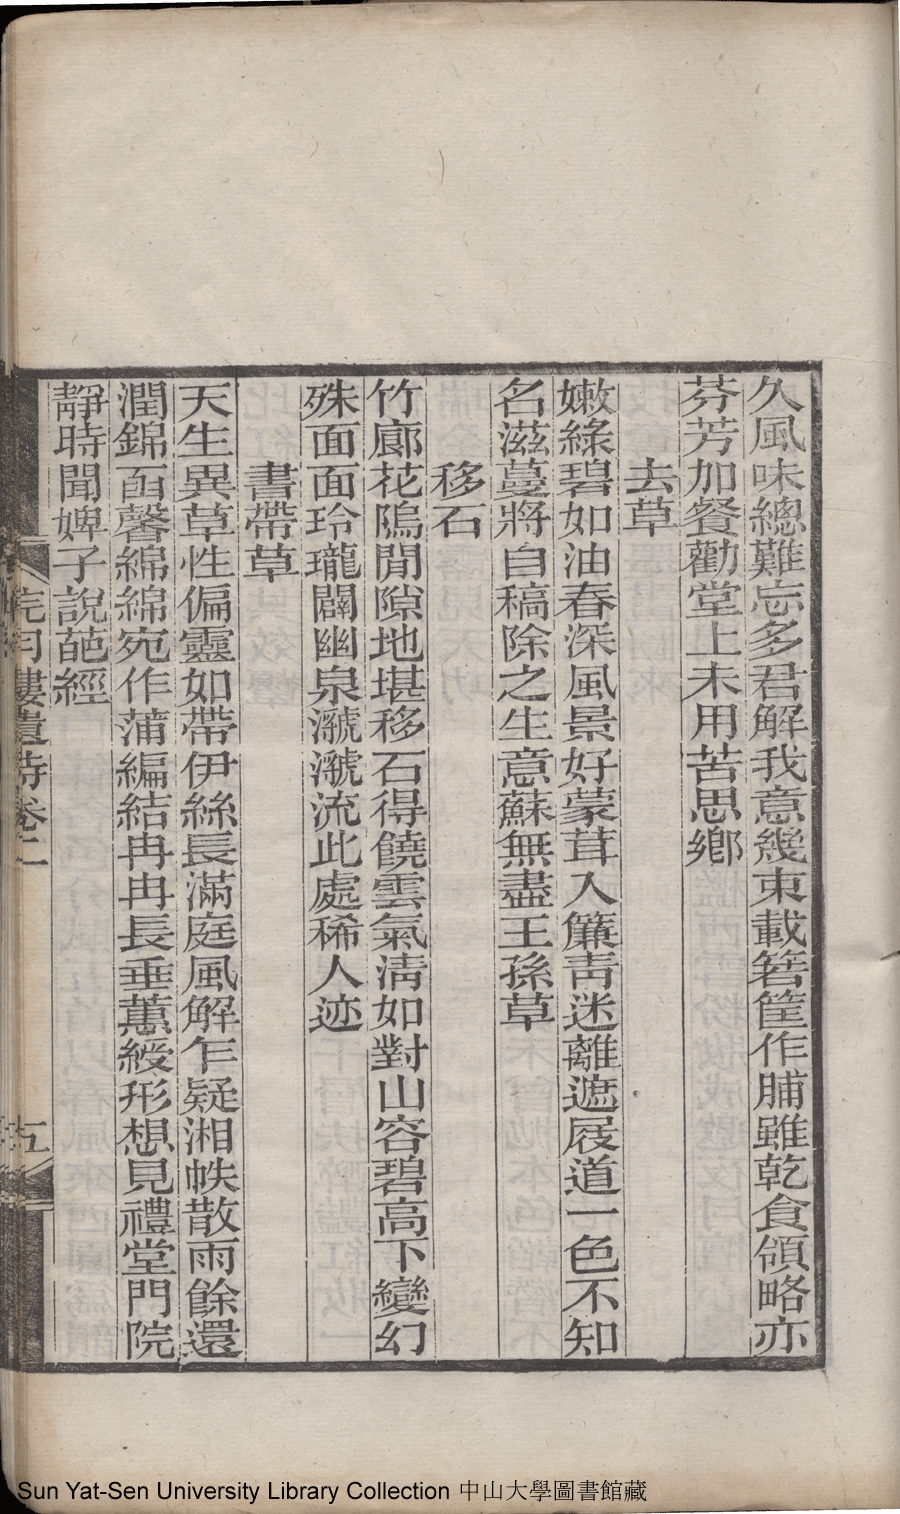 久風味總難忘多君解我意幾束載箬筐作脯雖乾食領略亦
芬芳加餐勸堂上未用苦思鄉
去草
嫩綠碧如油春深風景好蒙茸入簾青迷離遮屐道一色不知
名滋蔓將自稿除之生意蘇無盡王孫草
移石
竹廊花隖閒隙地堪移石得饒雲氣淸如對山容碧高下變幻
殊面面玲瓏闢幽泉㶁㶁流此處稀人迹
書帶草
天生異草性偏靈如帶伊絲長滿庭風解乍疑湘帙散雨餘還
潤錦函馨綿綿宛作蒲編結冉冉長垂蕙綬形想見禮堂門院
靜時聞婢子說葩經
月樓遺詩卷二
五
Sun Yat-Sen University Library Collection 中山大學圖書館藏